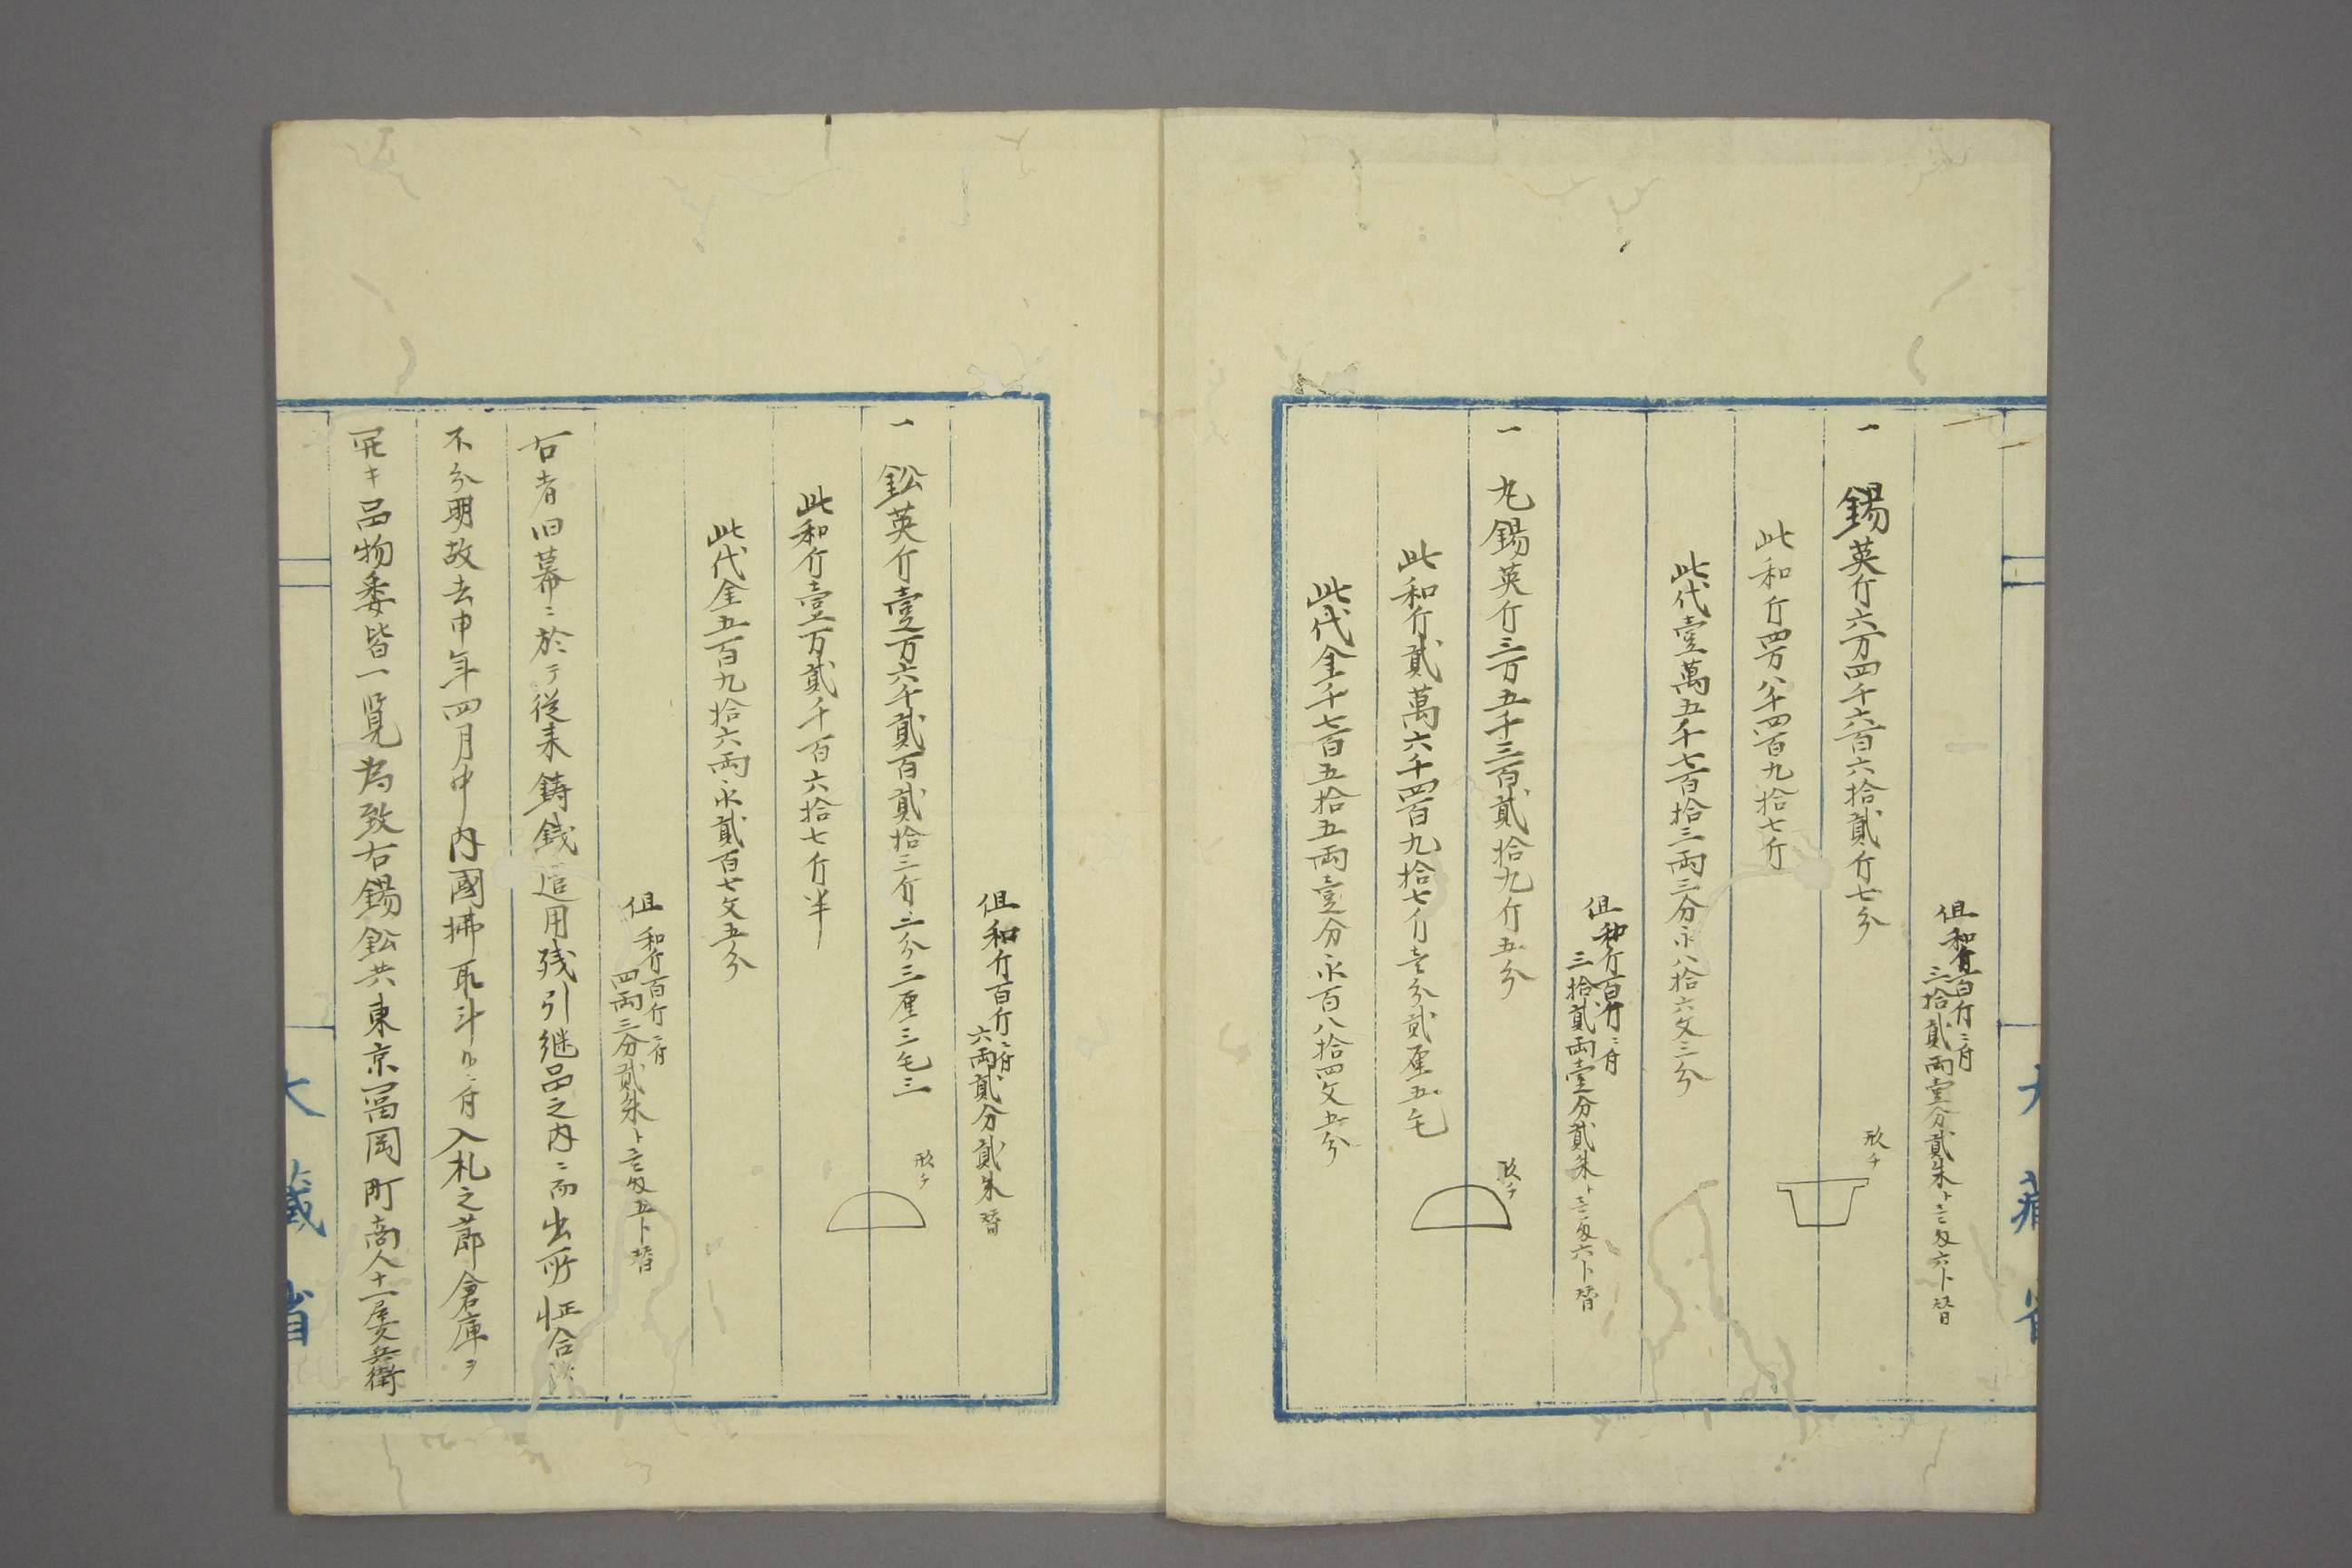 但和斤百斤ニ付
三拾貳両壹分貳朱ト
一 錫英斤六万四千六百六拾貳斤七分
形チ
此和斤四万八千四百九拾七斤
此代壹萬五千七百拾三両三分永八拾六文三分
但和斤百斤ニ付
三拾貳両壹分貳朱ト
一 丸錫英斤三万五千三百貳拾九斤五分
形チ
此和斤貳萬六千四百九拾七斤壱分貳厘五毛
此代金千七百五拾五両壹分永百八拾四文五分
但和斤百斤ニ付
六両貳分貳朱替
一 鈆英斤壹万六千貳百貳拾三斤三分三厘三毛三
形チ
此和斤壹万貳千百六拾七斤半
此代金五百九拾六両永貳百七文五分
但和斤百斤ニ付
四両三分貳朱ト
右者旧幕ニ於テ従来鋳銭遣用残引継品之内ニ而出所
不分明故去申年四月中内國拂取斗ルニ付入札之節倉庫ヲ
開キ品物委皆一覧為致右錫鈆共東京冨岡町商人
大藏省